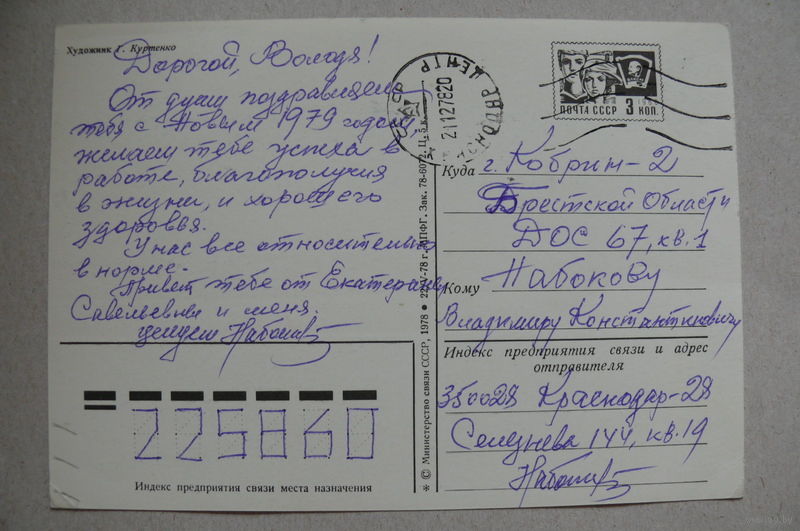 Художник Г. Куртенко
Дорогой, Володя!
От души поздравляем
тебя с Новым 1979 годом,
желаем тебе успеха в
работе, благополучия
в жизни, и хорошего
здоровья.
У нас все относительно
в норме.
Привет тебе от Екатерины
Савельевны и меня.
целуем
ПОЧТА СССР 3 КОП.
ЦЕНТР
21127820
Куда г. Кобрин-2
Брестской Области
ДОС 67, кв. 1
Кому Набокову
Владимиру Константиновичу
Индекс предприятия связи и адрес
отправителя
350028 Краснодар-28
Селезнева 144, кв. 19
225860
Индекс предприятия связи места назначения
* © Министерство связи СССР, 1978 • 22/V-78 г. МПФГ. Зак. 78-6072. Ц. 5 к.